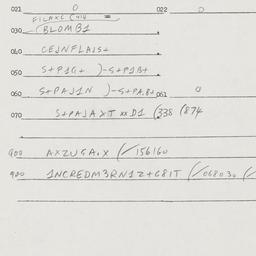 021 0 022 0
030 (BLOMB1
040 CEJNFLAIS+
050 S+P1G+ )-S+P1B+
060 S+PAJ1N )-S+PA.B+ 061 0
070 S+PAJAXIT xx D1 (338 (874
900 AXZUGA.X (/156160
900 1NCREDM3RN1Z+G81T (/068030 (/